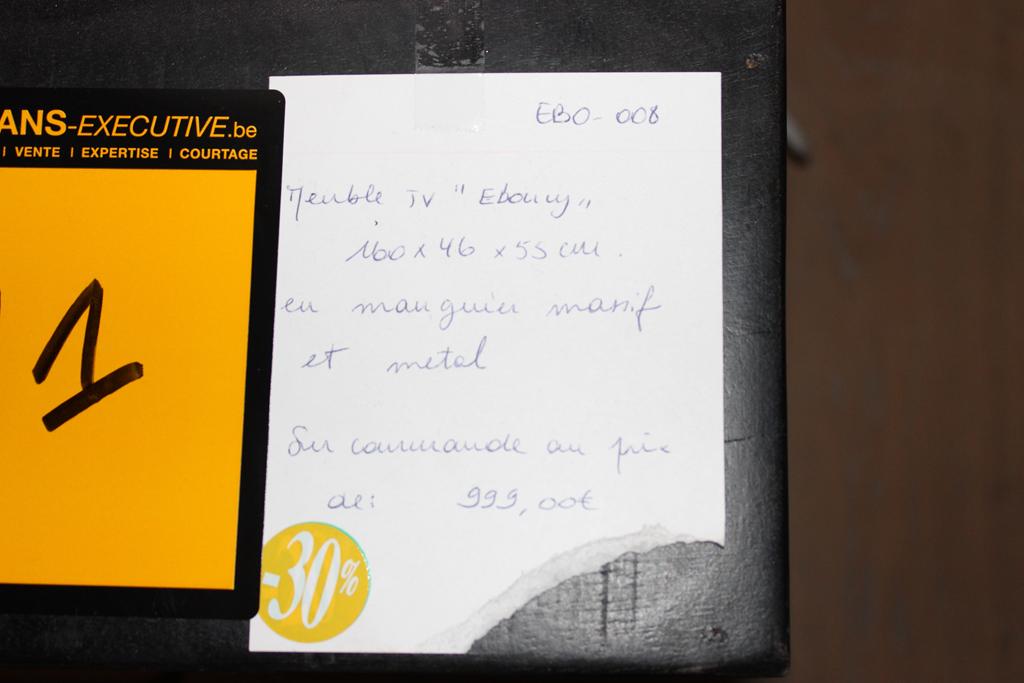 ANS-EXECUTIVE.be
| VENTE | EXPERTISE | COURTAGE
1
EBO-008
Meuble TV "Ebony"
160 x 46 x 55 cm.
en manguier massif
et metal
Sur commande au prix
de: 999,00€
-30%